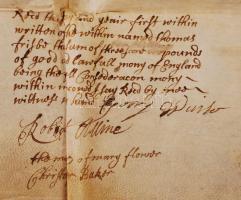 Recd the day and yeare first within
written of the within named Thomas
frisbe the sum of threescore pounds
of good & lawfull mony of England
being the full Consideracon mony
within menconed I say Recd by mee
witness my hand
Robert
the m of mary flower
Christor Baker